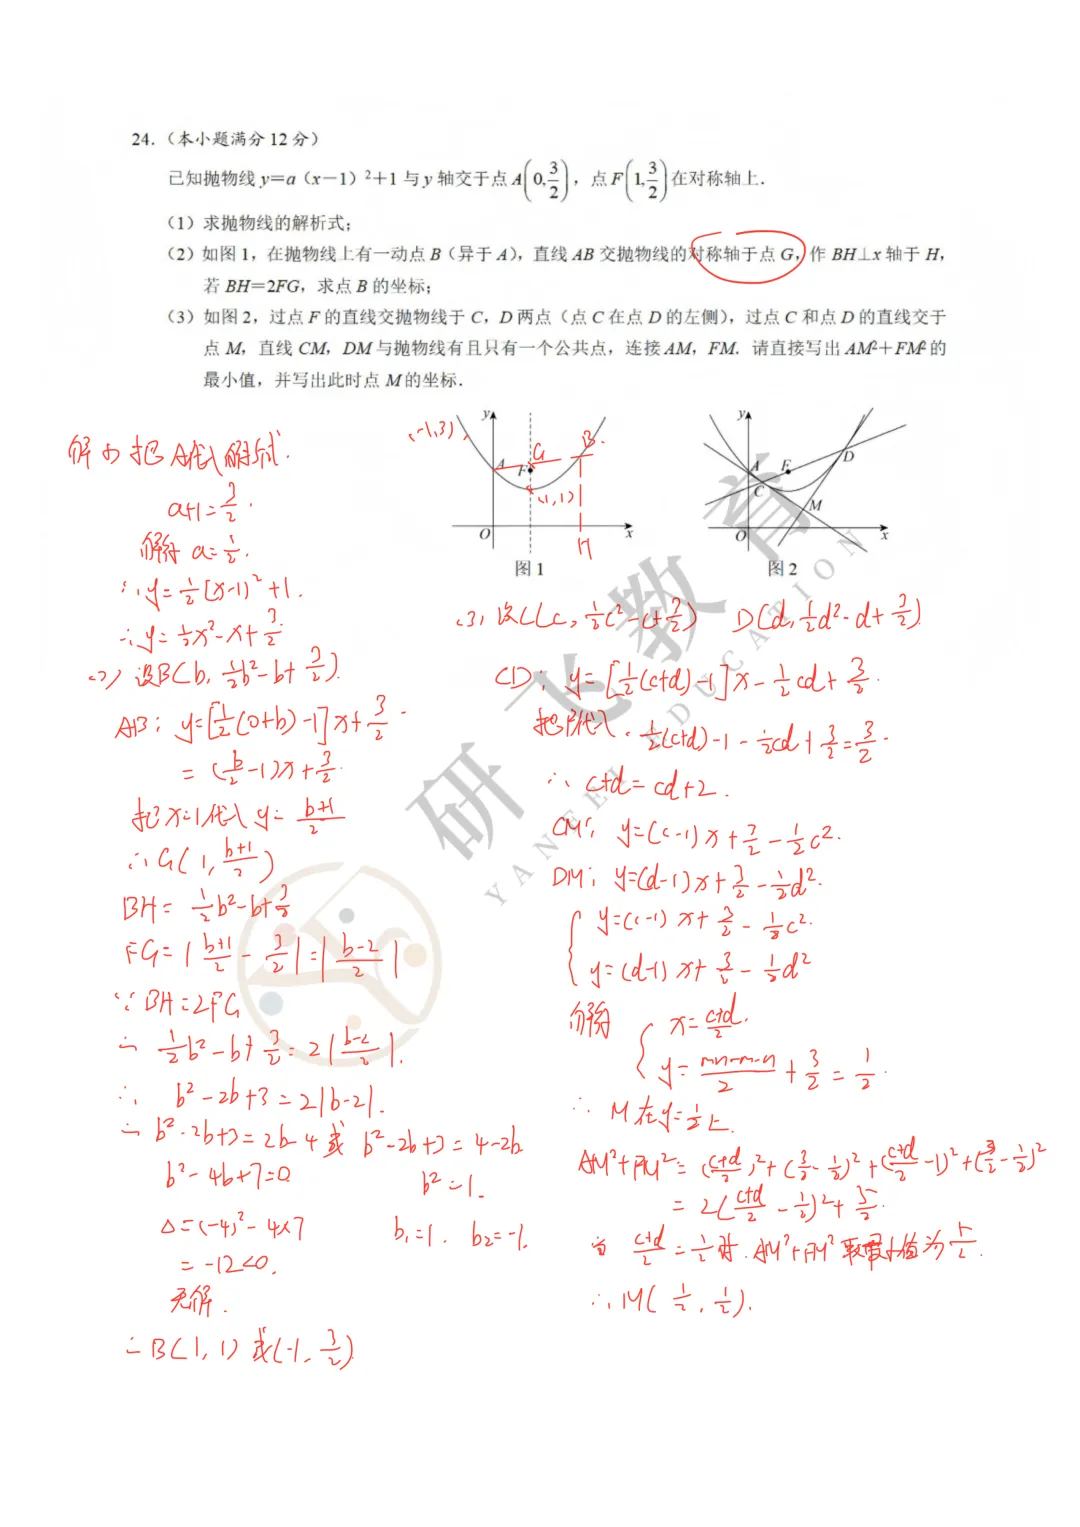 24.（本小题满分12分）
已知抛物线 y=a（x−1）²+1 与 y 轴交于点 A(0,3/2)，点 F(1,3/2)在对称轴上．
（1）求抛物线的解析式；
（2）如图 1，在抛物线上有一动点 B（异于 A），直线 AB 交抛物线的对称轴于点 G，作 BH⊥x 轴于 H，
若 BH=2FG，求点 B 的坐标；
（3）如图 2，过点 F 的直线交抛物线于 C，D 两点（点 C 在点 D 的左侧），过点 C 和点 D 的直线交于
点 M，直线 CM，DM 与抛物线有且只有一个公共点，连接 AM，FM．请直接写出 AM²+FM² 的
最小值，并写出此时点 M 的坐标．
(-1,3)
y
A
G
F
B
(1,1)
O
H
x
图 1
y
A
F
C
D
M
O
x
图 2
解(1)把A代入解析式.
a+1=3/2.
解得 a=1/2.
∴y=1/2(x-1)²+1.
∴y=1/2x²-x+3/2
(2)设B(b, 1/2b²-b+3/2).
AB: y=[1/2(0+b)-1]x+3/2.
=(b/2-1)x+3/2.
把x=1代入 y=(b+1)/2
∴G(1, (b+1)/2)
BH=1/2b²-b+3/2
FG=|(b+1)/2-3/2|=|(b-2)/2|
∵BH=2FG
∴1/2b²-b+3/2=2|(b-2)/2|.
∴b²-2b+3=2|b-2|.
∴b²-2b+3=2b-4或 b²-2b+3=4-2b
b²-4b+7=0 b²=1.
△=(-4)²-4×7 b₁=1. b₂=-1.
=-12<0.
无解.
∴B(1,1)或(-1,3/2)
(3)设C(c, 1/2c²-c+3/2) D(d, 1/2d²-d+3/2)
CD: y=[1/2(c+d)-1]x-1/2cd+3/2.
把F代入. 1/2(c+d)-1-1/2cd+3/2=3/2.
∴c+d=cd+2.
CM: y=(c-1)x+3/2-1/2c².
DM: y=(d-1)x+3/2-1/2d².
y=(c-1)x+3/2-1/2c².
y=(d-1)x+3/2-1/2d²
解得 x=(c+d)/2.
y=(mn-m-n)/2+3/2=1/2.
∴M在y=1/2上.
AM²+FM²=((c+d)/2)²+(3/2-1/2)²+((c+d)/2-1)²+(3/2-1/2)²
=2((c+d)/2-1/2)²+5/2.
当(c+d)/2=1/2时. AM²+FM²取最小值为5/2.
∴M(1/2,1/2).
研飞教育
YANFEI EDUCATION